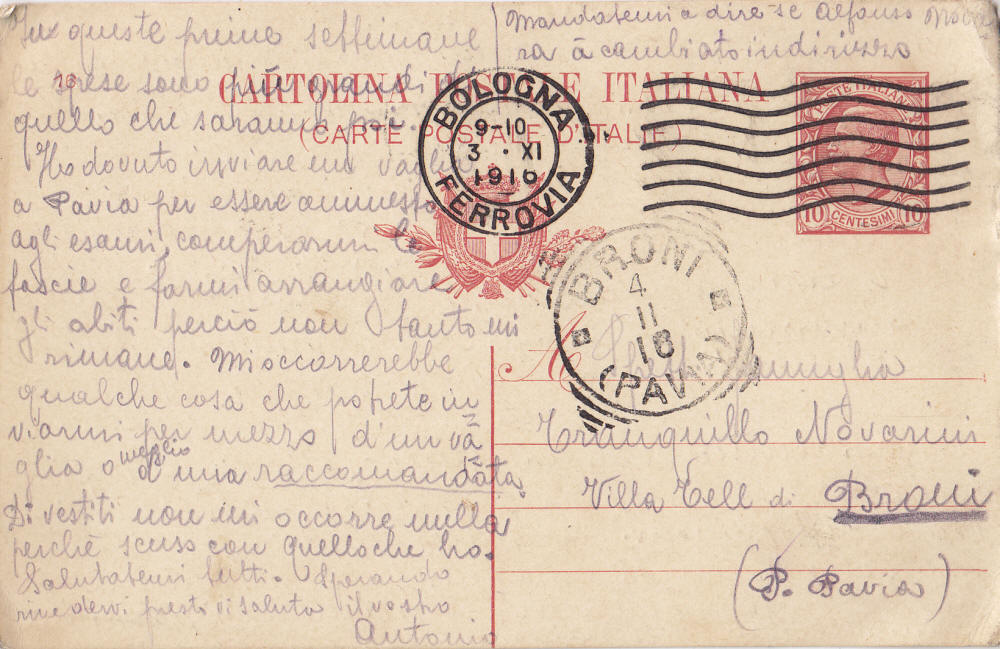 In queste prime settimane
le spese sono più grandi di
quello che saranno poi.
Ho dovuto inviare un vaglia
a Pavia per essere ammesso
agli esami, comperarmi le
fascie e farmi arrangiare
gli abiti perciò non tanto mi
rimane. Mi occorrerebbe
qualche cosa che potrete in
viarmi per mezzo d'un va
glia o meglio d'una raccomandata.
Di vestiti non mi occorre nulla
perchè scuso con quello che ho.
Salutatemi tutti. Sperando
rivedervi presto vi saluta il vostro
Antonio
Mandatemi a dire se Alfonso
ra à cambiato indirizzo
16
CARTOLINA POSTALE ITALIANA
(CARTE POSTALE D'ITALIE)
BOLOGNA
9-10
3 · XI
1916
FERROVIA
POSTE ITALIANE
10 CENTESIMI 10
BRONI
4
11
16
(PAVIA)
A Famiglia
Tranquillo Novarini
Villa Tell di Broni
(P. Pavia)